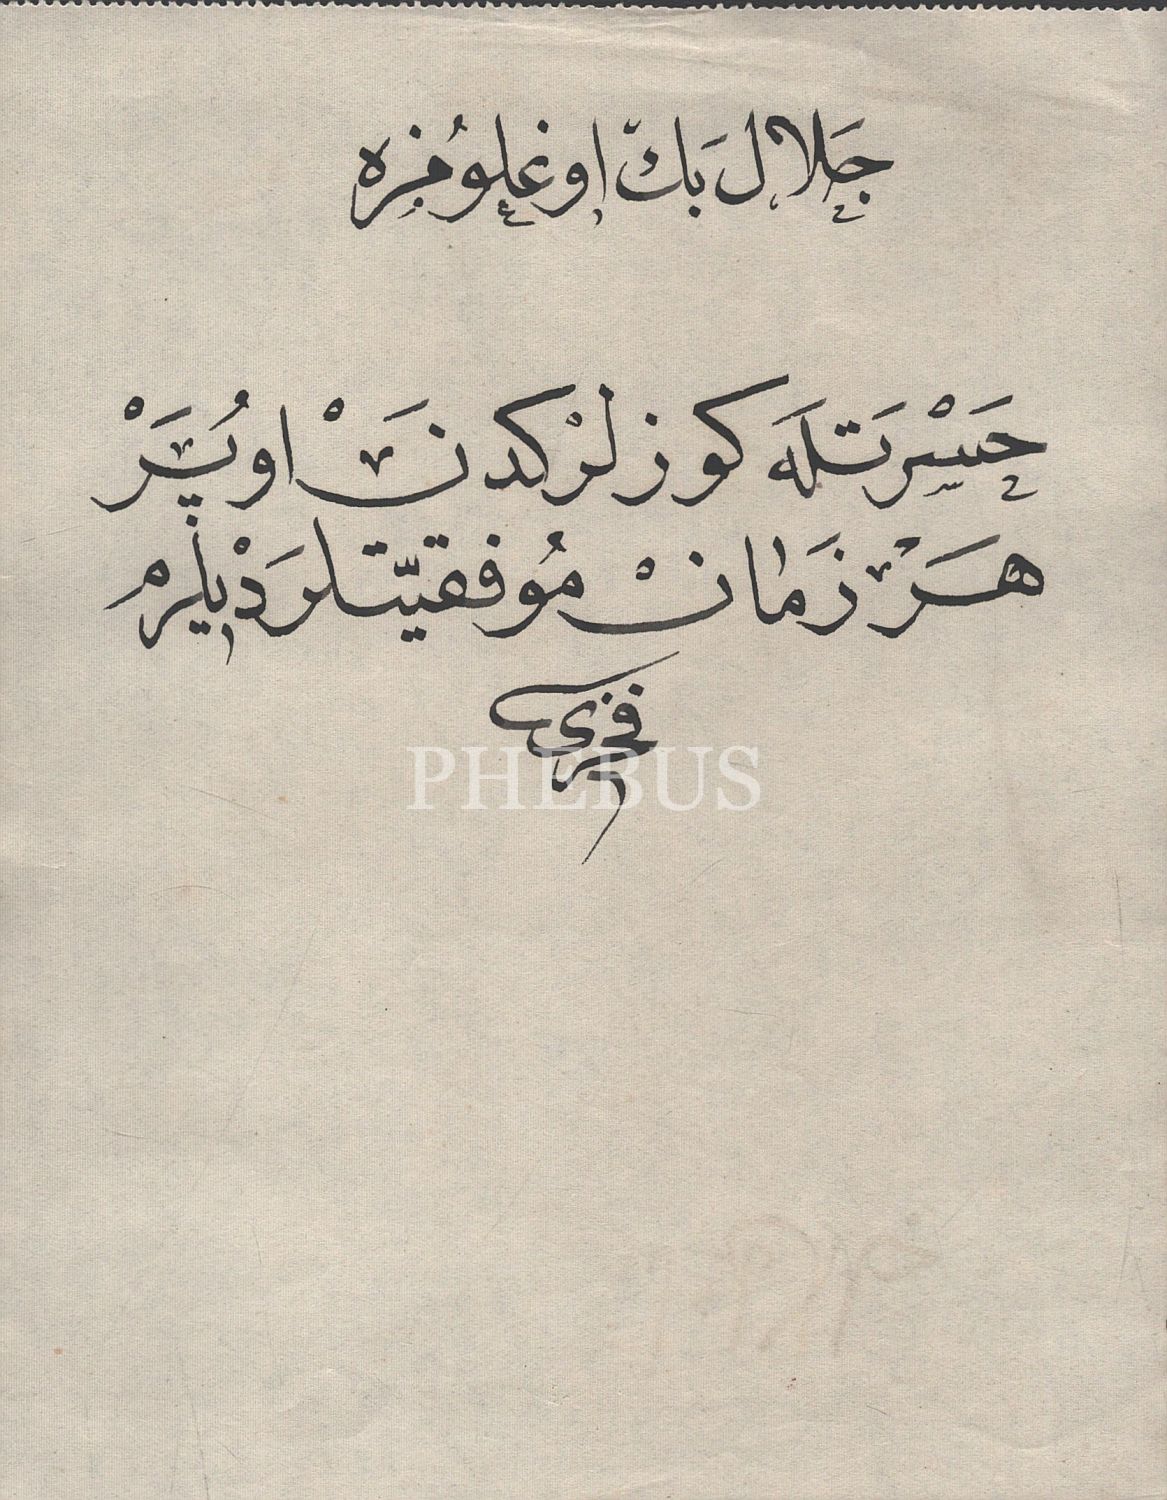 جَلال بَكّ اوغلوُمزه
حَسْرَتلَه كوزلرْكدنَْ اوپُرَْ
هَرْ زَمانْ مُوفقيّتلرَ دْيلرم
فخری
PHEBUS